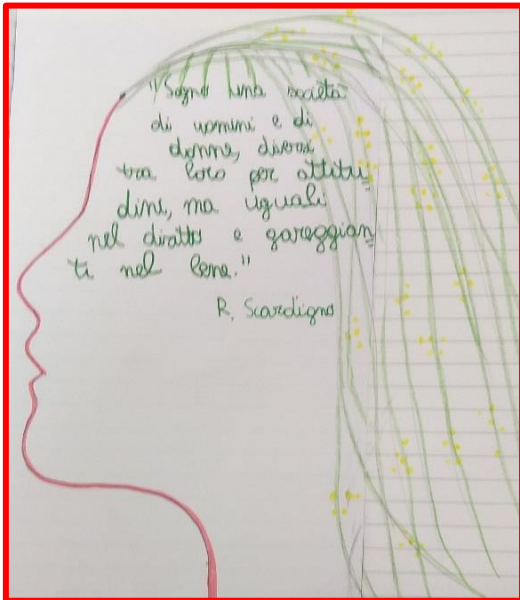 "Sogno una società
di uomini e di
donne, diversi
tra loro per attitu
dini, ma uguali
nel diritto e gareggian
ti nel bene."
R. Scardigno